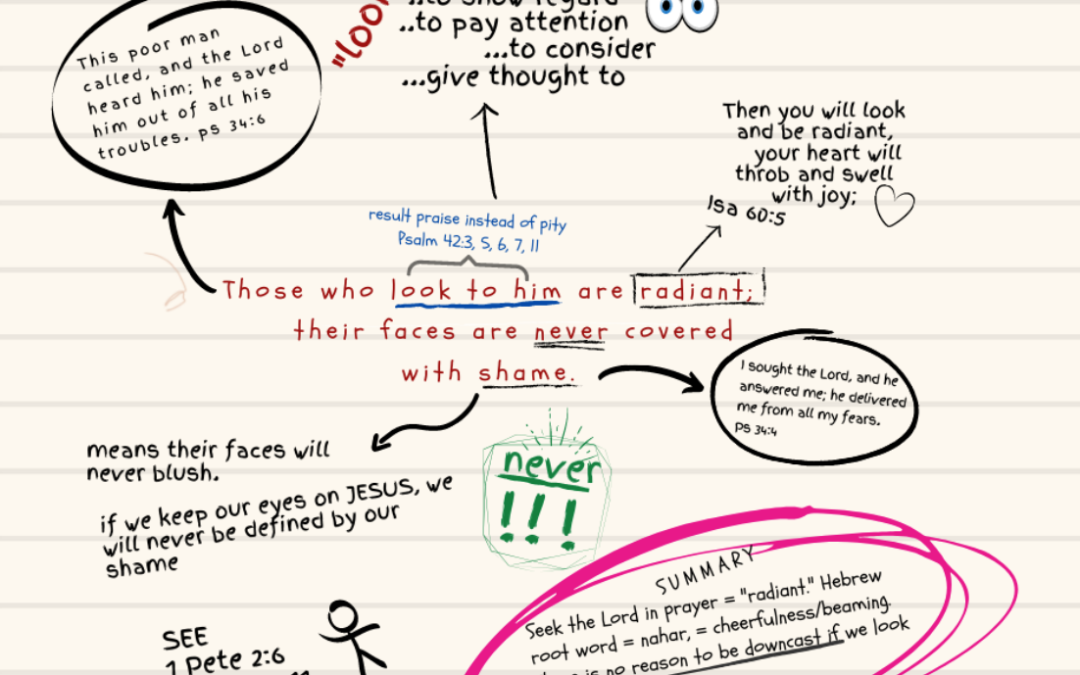 This poor man
called, and the Lord
heard him; he saved
him out of all his
troubles. ps 34:6
"LOOK
..to show regard
..to pay attention
...to consider
...give thought to
Then you will look
and be radiant,
your heart will
throb and swell
with joy;
Isa 60:5
result praise instead of pity
Psalm 42:3, 5, 6, 7, 11
Those who look to him are radiant;
their faces are never covered
with shame.
I sought the Lord, and he
answered me; he delivered
me from all my fears.
Ps 34:4
means their faces will
never blush.
if we keep our eyes on JESUS, we
will never be defined by our
shame
never
!!!
SUMMARY
Seek the Lord in prayer = "radiant." Hebrew
root word = nahar, = cheerfulness/beaming.
is no reason to be downcast if we look
SEE
1 Pete 2:6